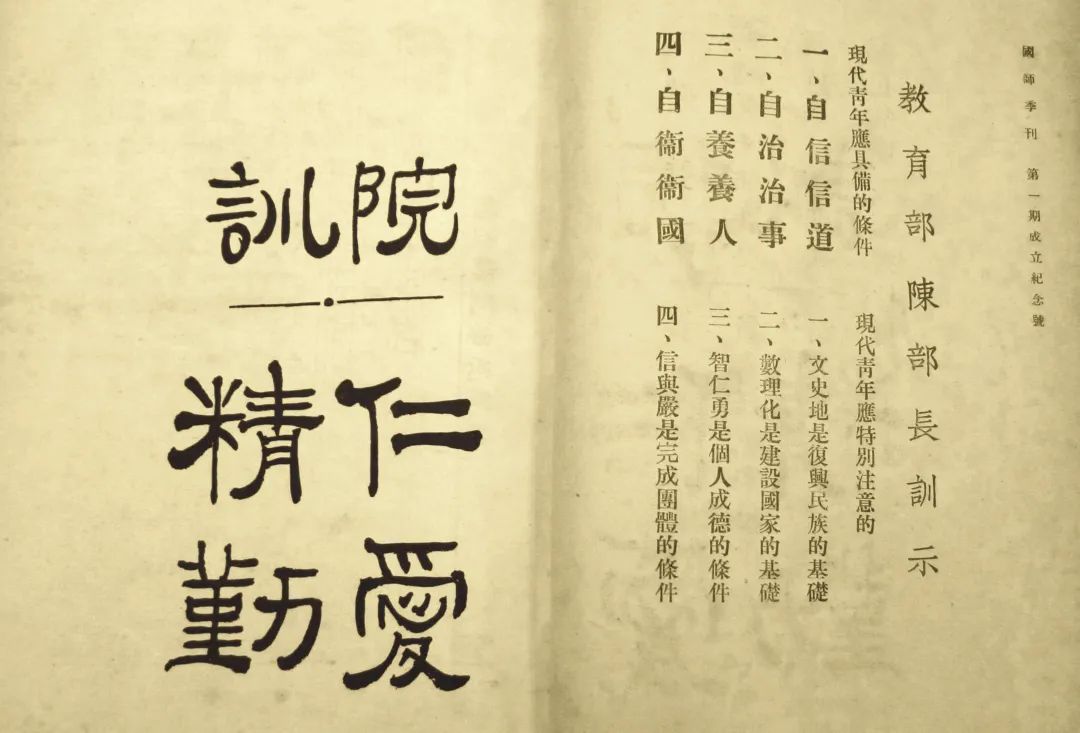 國師季刊 第一期成立紀念號
教育部陳部長訓示
現代青年應具備的條件
一、自信信道
二、自治治事
三、自養養人
四、自衞衞國
現代青年應特別注意的
一、文史地是復興民族的基礎
二、數理化是建設國家的基礎
三、智仁勇是個人成德的條件
四、信與嚴是完成團體的條件
院訓
仁愛
精勤